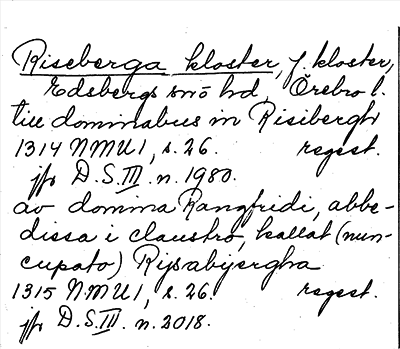 Riseberga kloster, f. kloster,
Edsbergs snö hd, Örebro l.
till dominabus in Risibergh
1314 NMU1, s. 26. regest.
jfr D.S.III. n. 1980.
av domina Rangfridi, abbe-
dissa i claustro, kallat (nun-
cupato) Rysabyergha
1315 NMU1, s. 26. regest.
jfr D.S.III. n. 2018.